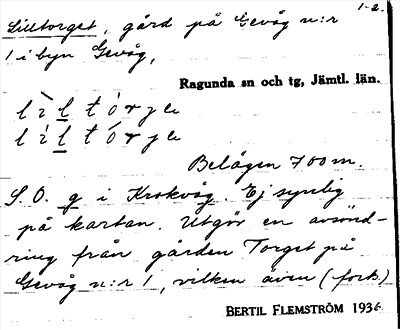 1-2.
Lilltorget, gård på Gevåg n:r
1 i byn Gevåg,
Ragunda sn och tg, Jämtl. län.
lìltórje
líltórje
Belägen 700 m.
S.O. g i Krokvåg. Ej synlig
på kartan. Utgör en avsönd-
ring från gården Torget på
Gevåg n:r 1, vilken även (fork.)
BERTIL FLEMSTRÖM 1936